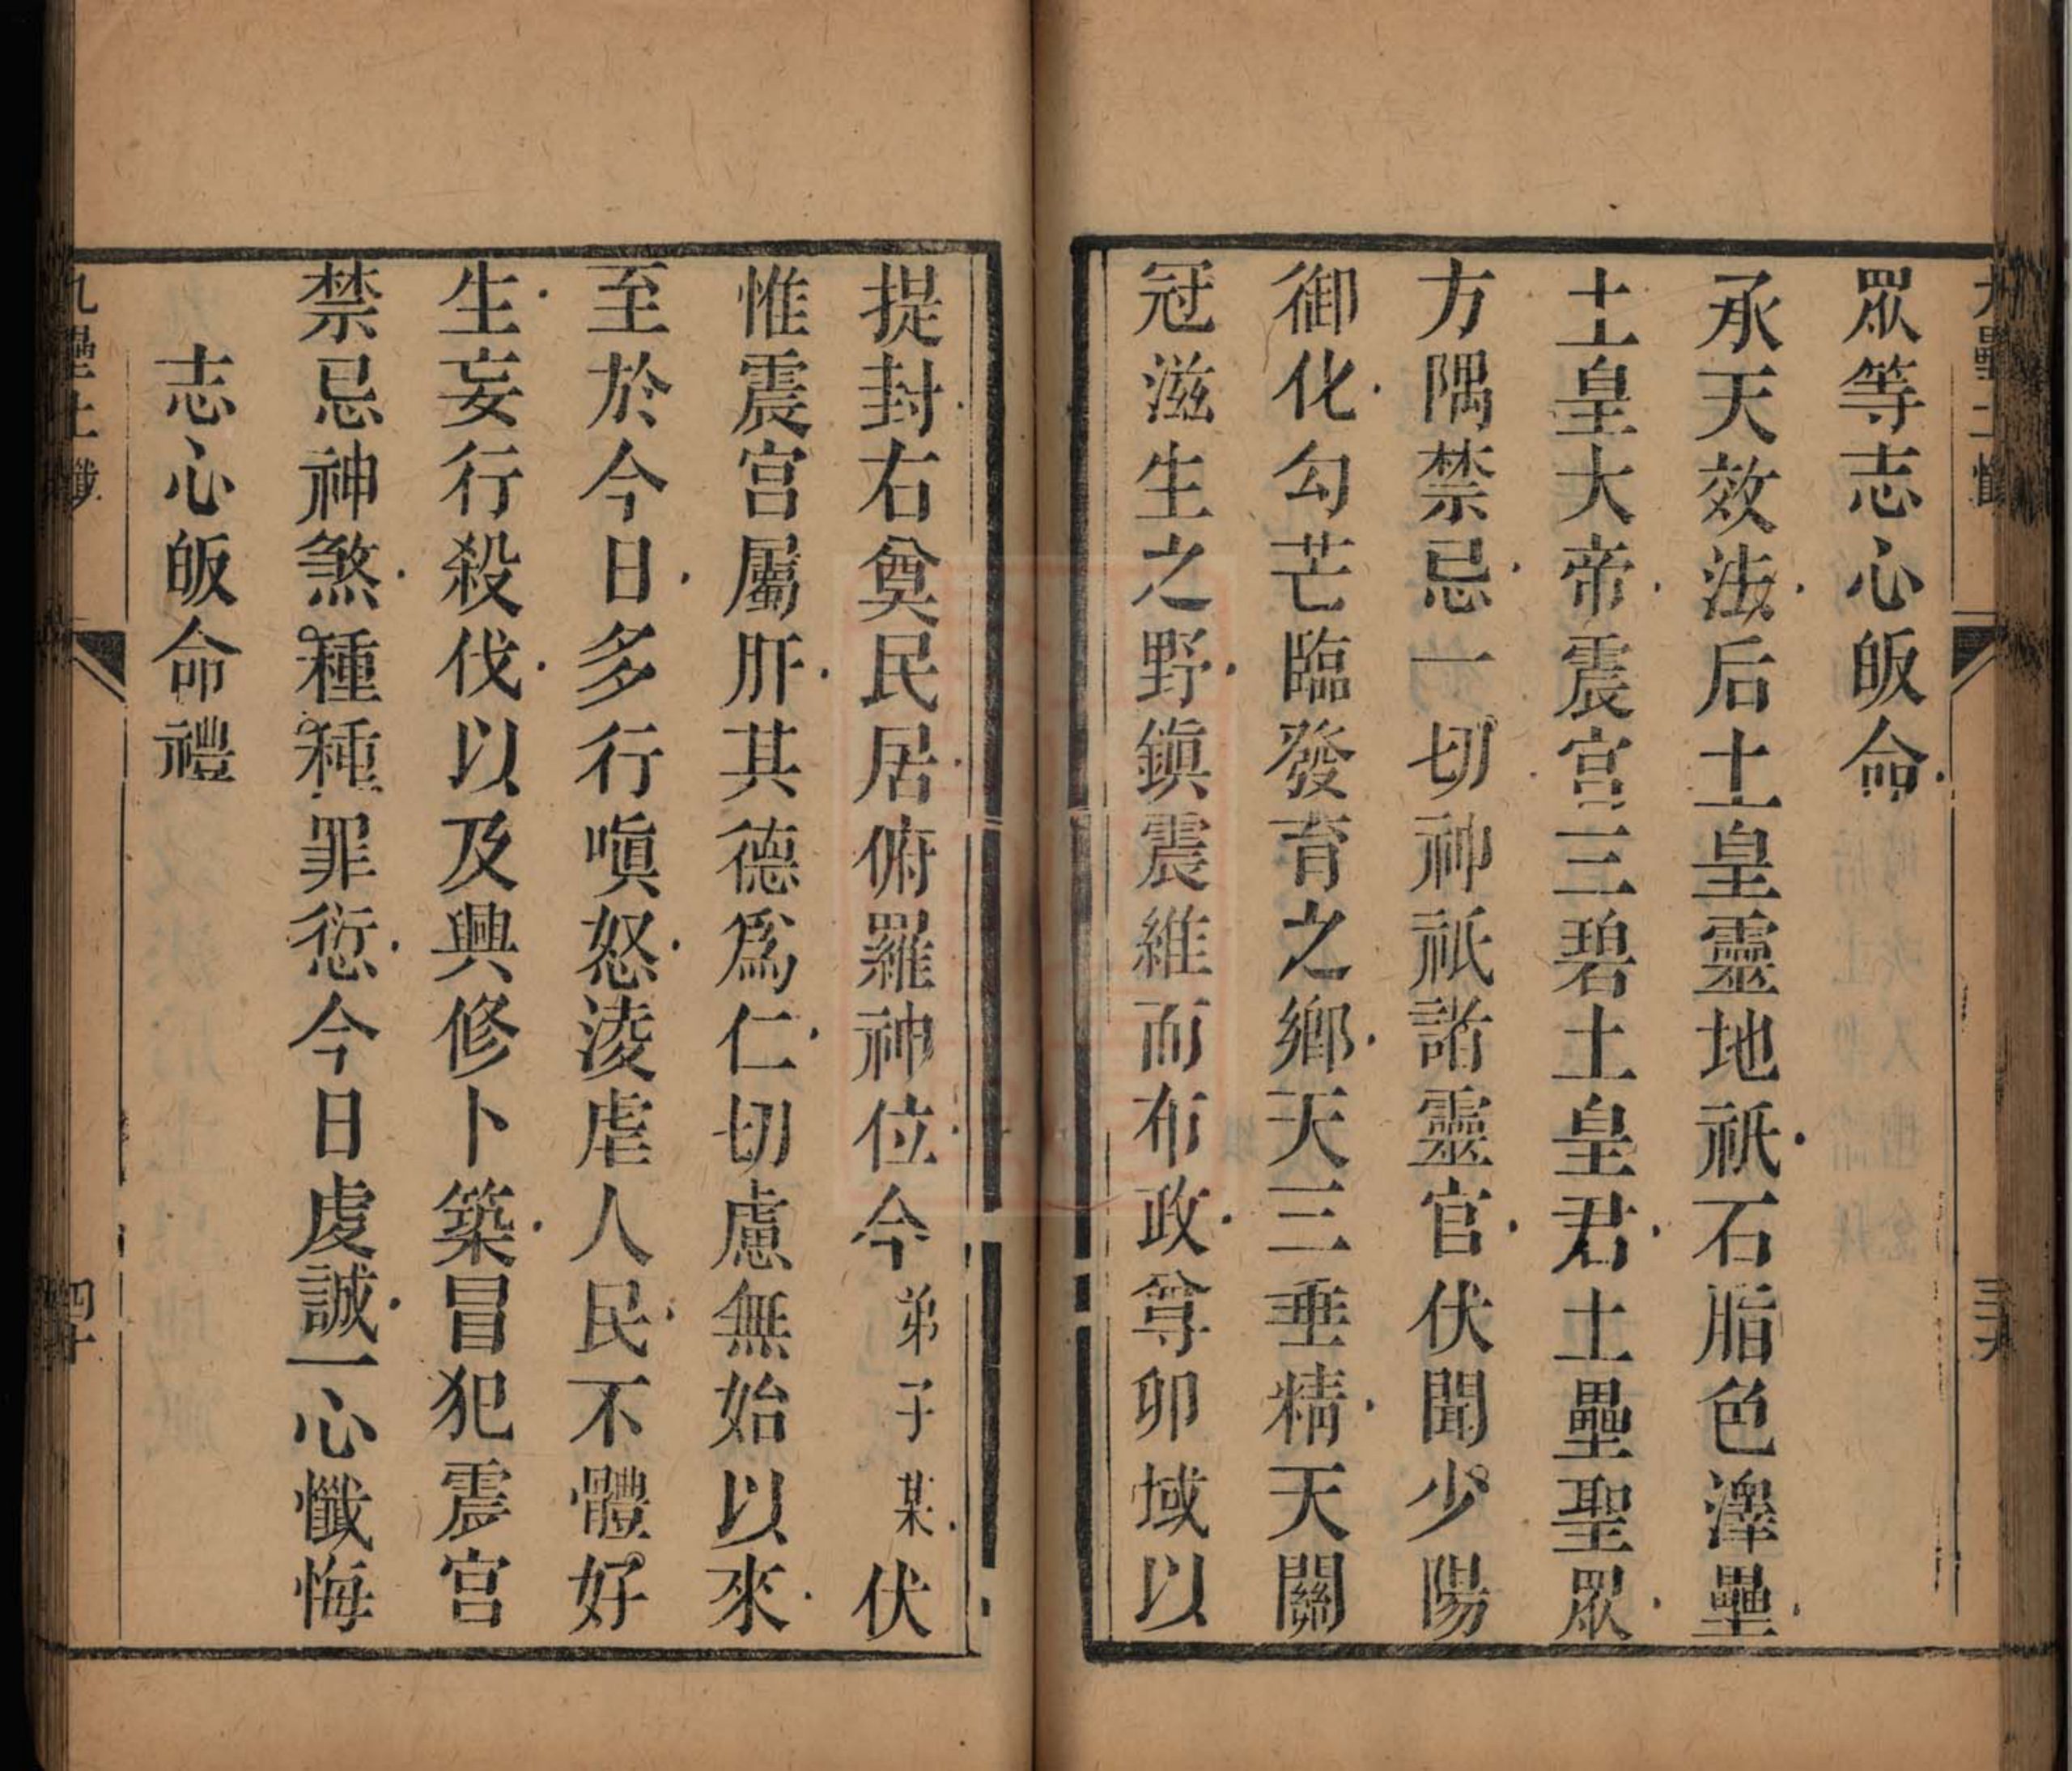 九壘土懺
三十九
眾等志心皈命
承天效法后土皇靈地祇石脂色澤壘
土皇大帝震宮三碧土皇君土壘聖眾
方隅禁忌一切神祇諸靈官伏聞少陽
御化勾芒臨發育之鄉天三垂精天關
冠滋生之野鎮震維而布政尊卯域以
提封右奠民居俯羅神位今弟子某伏
惟震宮屬肝其德爲仁切慮無始以來
至於今日多行嗔怒淩虐人民不體好
生妄行殺伐以及興修卜築冒犯震宮
禁忌神煞種種罪愆今日虔誠一心懺悔
志心皈命禮
九壘土懺
四十